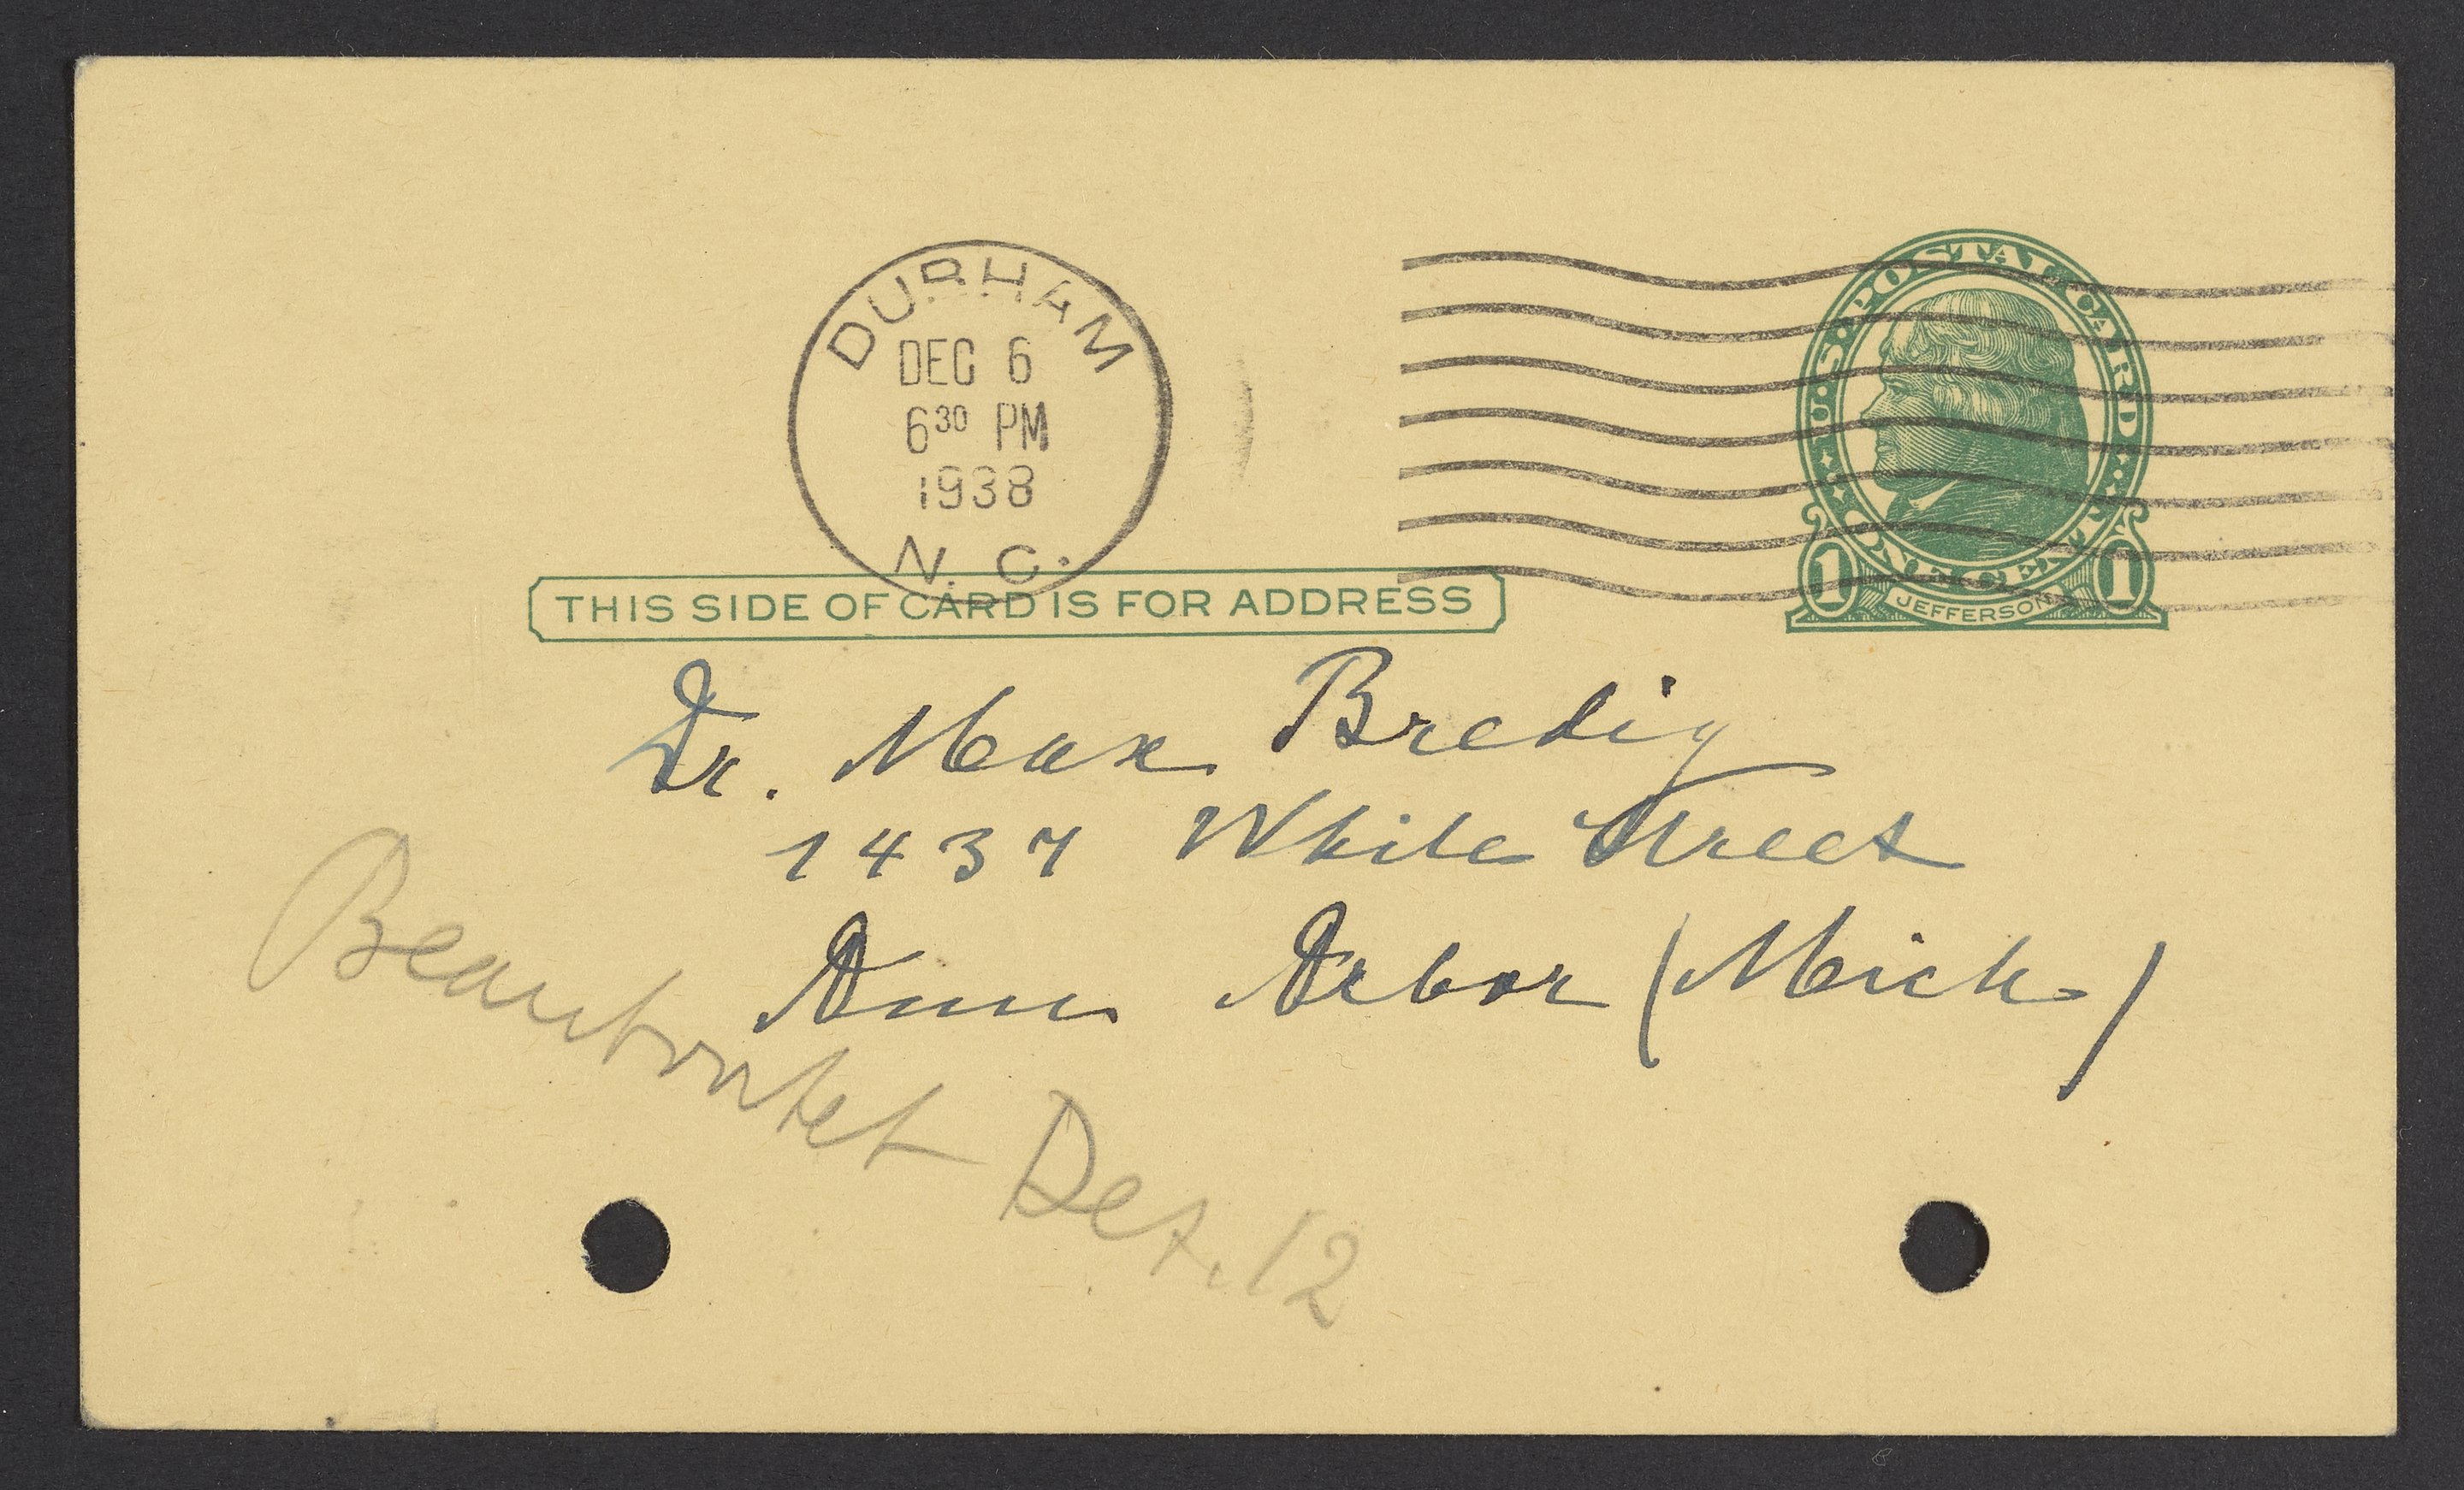 DURHAM
DEC 6
6 30 PM
1938
N. C.
U·S·POSTAL CARD·
ONE CENT
1 1
JEFFERSON
THIS SIDE OF CARD IS FOR ADDRESS
Dr. Max Bredig
1437 White Street
Ann Arbor (Mich.)
Beantwortet Dez. 12